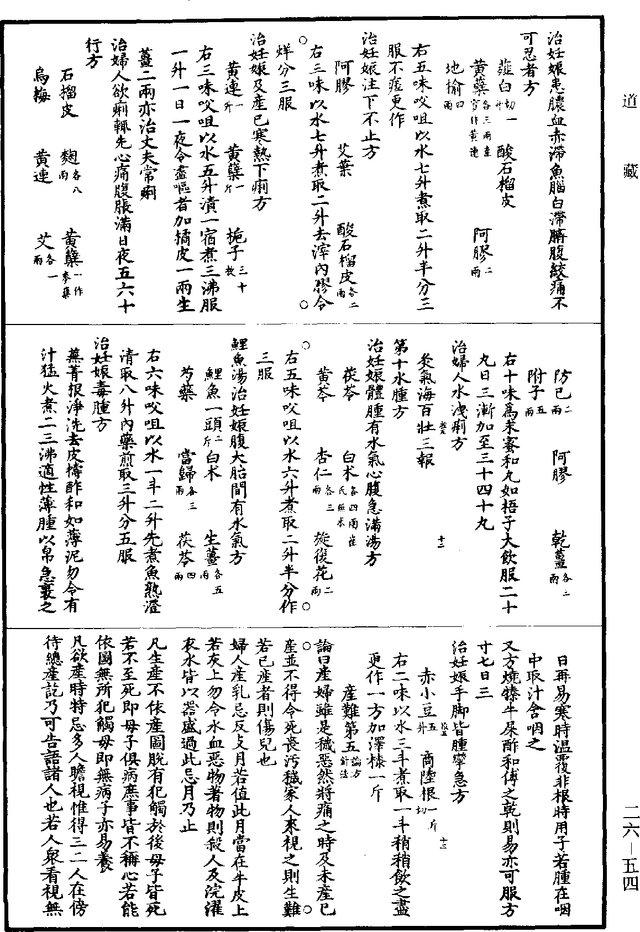 道藏
治妊娠患膿血赤滯魚腦白滯臍腹絞痛不
可忍者方
薤白切一 酸石榴皮
黃蘗各三兩產寶作黃連 阿膠二兩
地榆四兩
右五味㕮咀以水七升煮取二升半分三
服不瘥更作
治妊娠注下不止方
阿膠 艾葉 酸石榴皮各二兩
右三味以水七升煮取二升去滓內膠令
烊分三服
治妊娠及產已寒熱下痢方
黃連一升 黃蘗一斤 梔子三十枚
右三味㕮咀以水五升漬一宿煮三沸服
一升一日一夜令盡嘔者加橘皮一兩生
薑二兩亦治丈夫常痢
治婦人欲痢輒先心痛腹脹滿日夜五六十
行方
石榴皮 麴各八兩 黃蘗一作麥蘗
烏梅 黃連 艾各一兩
防已二兩 阿膠 乾薑各三兩
附子五兩
右十味爲末蜜和丸如梧子大飲服二十
丸日三漸加至三十四十丸
治婦人水洩痢方
灸氣海百壯三報
第十水腫方
治妊娠體腫有水氣心腹急滿湯方
茯苓 白朮各四兩崔氏無朮
黃芩 杏仁各三兩 旋復花二兩
右五味㕮咀以水六升煮取二升半分作
三服
鯉魚湯治妊娠腹大胎間有水氣方
鯉魚一頭二斤 白朮 生薑各五兩
芍藥 當歸各三兩 茯苓四兩
右六味㕮咀以水一斗二升先煮魚熟澄
清取八升內藥煎取三升分五服
治妊娠毒腫方
蕪菁根淨洗去皮擣酢和如薄泥勿令有
汁猛火煮二三沸適性薄腫以帛急裹之
日再易寒時溫覆非根時用子若腫在咽
中取汁含咽之
又方燒犢牛屎酢和傅之乾則易亦可服方
寸七日三
治妊娠手脚皆腫攣急方
赤小豆五升 商陸根一斤切
右二味以水三斗煮取一斗稍稍飲之盡
更作一方加澤漆一斤
產難第五論方針法
論曰產婦雖是穢惡然將痛之時及未產已
產並不得令死喪污穢家人來視之則生難
若已產者則傷兒也
婦人產乳忌反支月若值此月當在牛皮上
若灰上勿令水血惡物著物則殺人及浣濯
衣水皆以器盛過此忌月乃止
凡生產不依產圖脫有犯觸於後母子皆死
若不至死即母子俱病庶事皆不稱心若能
依圖無所犯觸母即無病子亦易養
凡欲產時特忌多人瞻視惟得三二人在傍
待總產訖乃可告語諸人也若人衆看視無
二六—五四